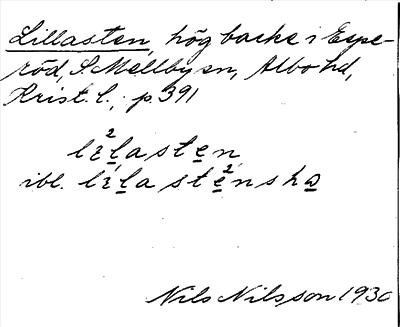 Lillasten, hög backe i Espe-
röd, S. Mellby sn, Albo hd,
Krist. l., p. 391
2
lɛlasten
ibl. lɛlastɛ²nshə
Nils Nilsson 1930